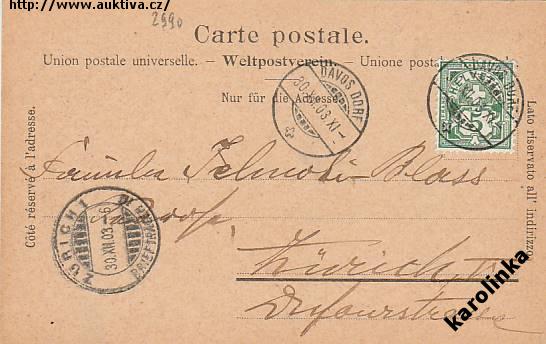 http://www.auktiva.cz/
2990
Carte postale.
Union postale universelle. – Weltpostverein. – Unione postale
Nur für die Adresse.
Côté réservé à l'adresse.
Lato riservato all' indirizzo.
DAVOS DORF
30.XII.03.XI–
HELVETIA
5
DAVOS DORF
Familie
Blass
ZÜRICH 1
30.XII.03.
Zürich
Dufourstrasse
karolinka